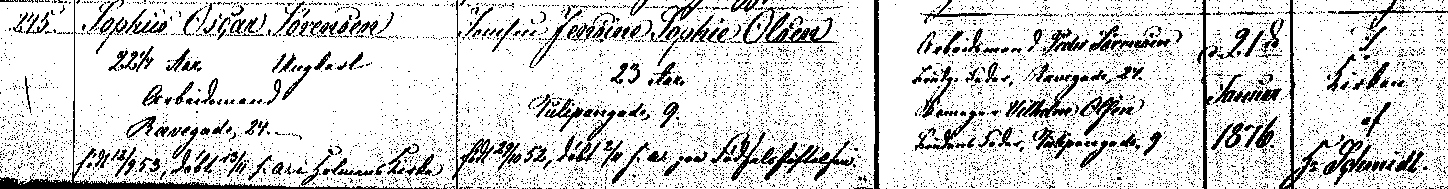 245.
Sophus Oscar Sörensen
22¼ Aar. Ungkarl
Arbeidsmand
Ravegade, 24.
født 12/9 53, døbt 13/11 Holmens Kirke
Jomfru Jensine Sophie Olsen
23 Aar.
Tulipangade, 9.
født 29/10 52, døbt
Arbeidsmand Peder Sörensen
Fader, Ravegade, 24.
Vilhelm Olsen
Brudens Fader, Tulipangade, 9
d 21de
Januar
1876.
I
Kirken
af
Hr Schmidt.